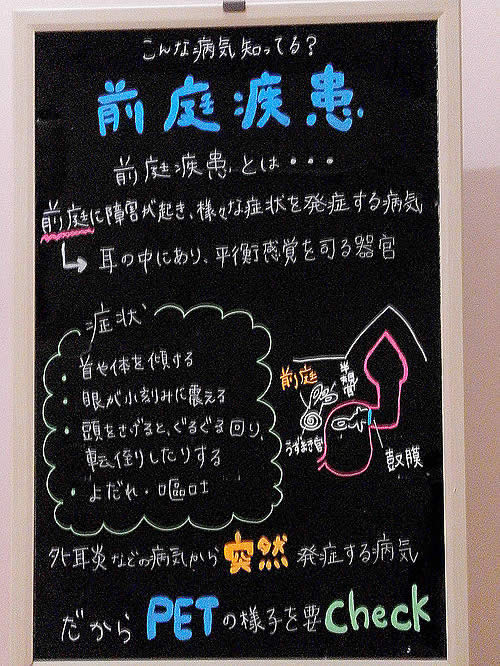 こんな病気知ってる?
前庭疾患
前庭疾患とは・・・
前庭に障害が起き、様々な症状を発症する病気
耳の中にあり、平衡感覚を司る器官
症状
・首や体を傾ける
・眼が小刻みに震える
・頭をさげると、ぐるぐる回り、
転倒したりする
・よだれ・嘔吐
前庭
半規管
うずまき管
鼓膜
外耳炎などの病気から突然発症する病気
だからPETの様子を要check